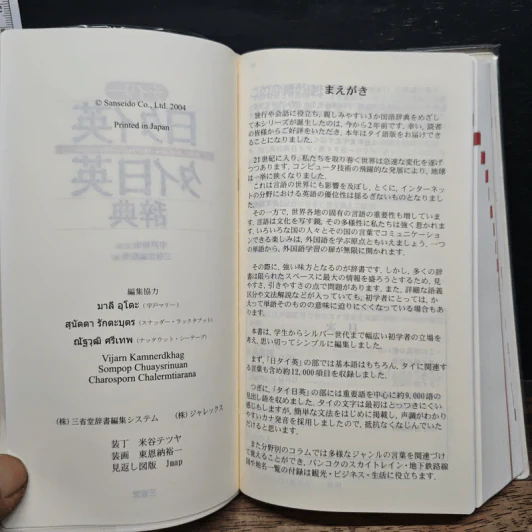 © Sanseido Co., Ltd. 2004
Printed in Japan
編集協力
มาลี อุโตะ (宇戸マリー)
สุนัดดา รักตะบุตร (スナッダー・ラックタブット)
ณัฐวุฒิ ศรีเทพ (ナッタウット・シーテープ)
Vijarn Kamnerdkhag
Sompop Chuaysrinuan
Charosporn Chalermtiarana
(株)三省堂辞書編集システム (株)ジャレックス
装丁 米谷テツヤ
装画 東恩納裕一
見返し図版 Jmap
まえがき
旅行や会話に役立ち、親しみやすい3か国語辞典をめざし
て本シリーズが誕生したのは、今から2年前です。幸い、読書
の皆様からご好評をいただき、本年はタイ語版をお届けでき
ることになりました。
21世紀に入り、私たちを取り巻く世界は急速な変化を遂げ
つつあります。コンピュータ技術の飛躍的な発展により、地球
は一挙に狭くなりました。
これは言語の世界にも影響を及ぼし、とくに、インターネッ
トの分野における英語の優位性は揺るぎないものとなりまし
た。
その一方で、世界各地の固有の言語の重要性も増していま
す。言語は文化を写す鏡、その多様性に私たちは強く惹かれま
す。いろいろな国の人々とその国の言葉でコミュニケーション
できる楽しみは、外国語を学ぶ原点ともいえましょう。一つ
の単語から、外国語学習の扉が無限に開かれます。
その際に、強い味方となるのが辞書です。しかし、多くの辞
書は限られたスペースに最大の情報を盛ろうとするため、見
やすさ、引きやすさの点で問題があります。また、詳細な語義
区分や文法解説などが入っていても、初学者にとっては、か
えって単語そのものの意味に迫りにくくなっている場合もあ
ります。
本書は、学生からシルバー世代まで幅広い初学者の立場を
考え、思い切ってシンプルに編集しました。
まず、「日タイ英」の部では基本語はもちろん、タイに関連す
る言葉も含め約12,000項目を収録しました。
つぎに、「タイ日英」の部には重要語を中心に約9,000語の
見出し語を収めました。タイの文字は最初はとっつきにくい
感じもしますが、簡単な文法をはじめに掲載し、声調がわかり
やすいカナ発音を採用しましたので、抵抗なくなじんでいた
だけると思います。
また分野別のコラムでは多様なジャンルの言葉を関連づけ
て覚えることができ、バンコクのスカイトレイン・地下鉄路線
図や地名一覧の付録は観光・ビジネス・生活に役立ちます。